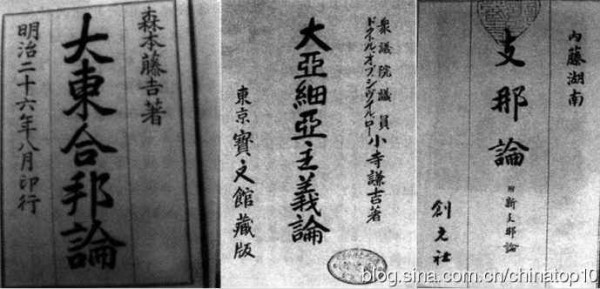 森本藤吉著
大東合邦論
明治二十六年八月印行
衆議院議員
ドクトルオブシヴィルロー
小寺謙吉著
大亞細亞主義論
東京寶文館藏版
內藤湖南
支那論
附新支那論
創元社
blog.sina.com.cn/chinatop10